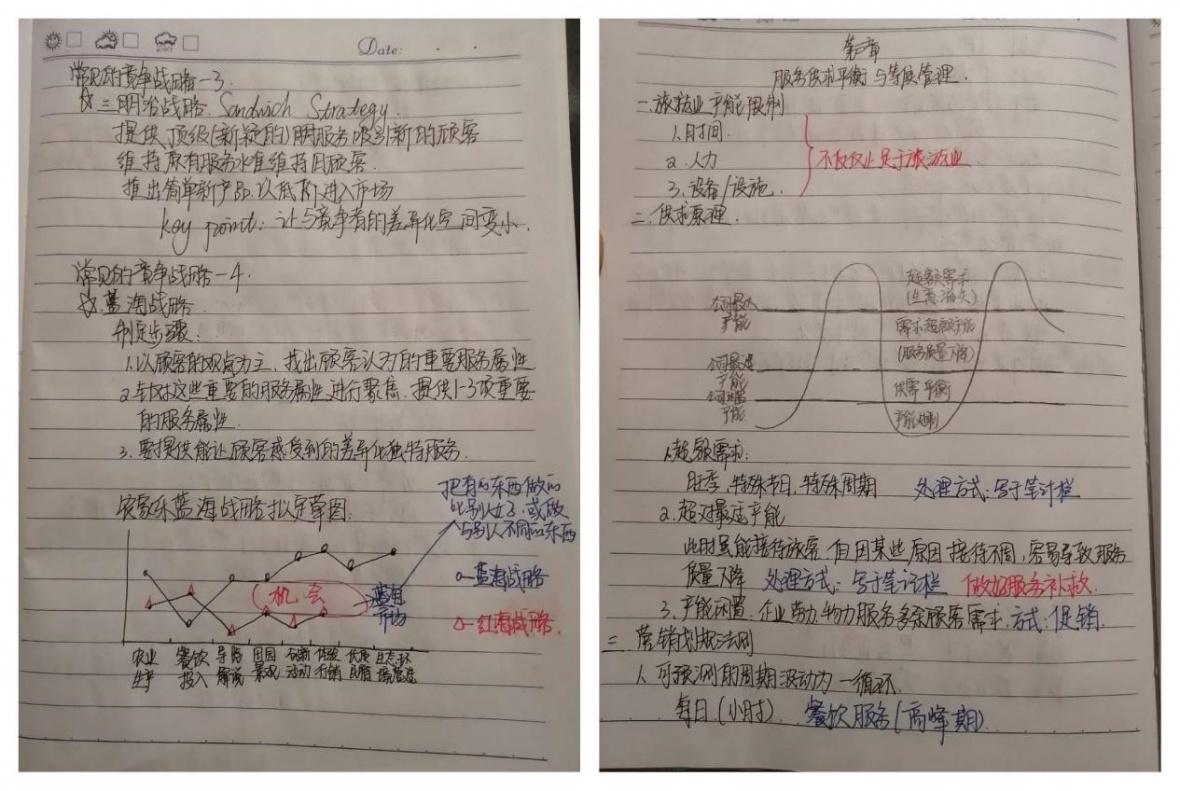 Date:
常见的竞争战略-3.
☆三明治战略. Sandwich Strategy.
提供顶级(新颖的)服务吸引新的顾客
维持原有服务水准维持旧顾客.
推出简单新产品.以低阶进入市场
key point: 让与竞争者的差异化空间变小.
常见的竞争战略-4.
☆.蓝海战略.
制定步骤:
1.以顾客的观点为主,找出顾客认为的重要服务属性
2.针对这些重要的服务属性进行聚焦.提供1-3项重要
的服务属性.
3.要提供能让顾客感受到的差异化独特服务.
把有的东西做的
比别人好.或做
与别人不同的东西
农家乐蓝海战略拟定草图.
o-蓝海战略
△-红海战略.
机会
市场
农业
生产
餐饮
投入
导览
解说
田园
景观
创新
活动
民宿
服务供求平衡与等候管理.
一.旅游业产能限制
1.时间.
2.人力
3.设备/设施.
不仅仅止足于旅游业
二.供求原理.
超额需求
(生意消失)
公司最大
产能
需求超额产能
(服务质量下降)
公司最适
产能
供需平衡
产能
1.超额需求:
旺季,特殊节日,特殊周期 处理方式:写于笔记栏
2.超过最适产能
此时虽能接待旅客.但因某些原因接待不周,容易导致服务
质量下降 处理方式:写于笔记栏 做好服务补救.
3.产能闲置.企业劳力物力服务多余顾客需求.方式:促销.
三.营销划规法则
1.可预测的周期波动为一循环.
每日(小时). 餐饮服务(高峰期)